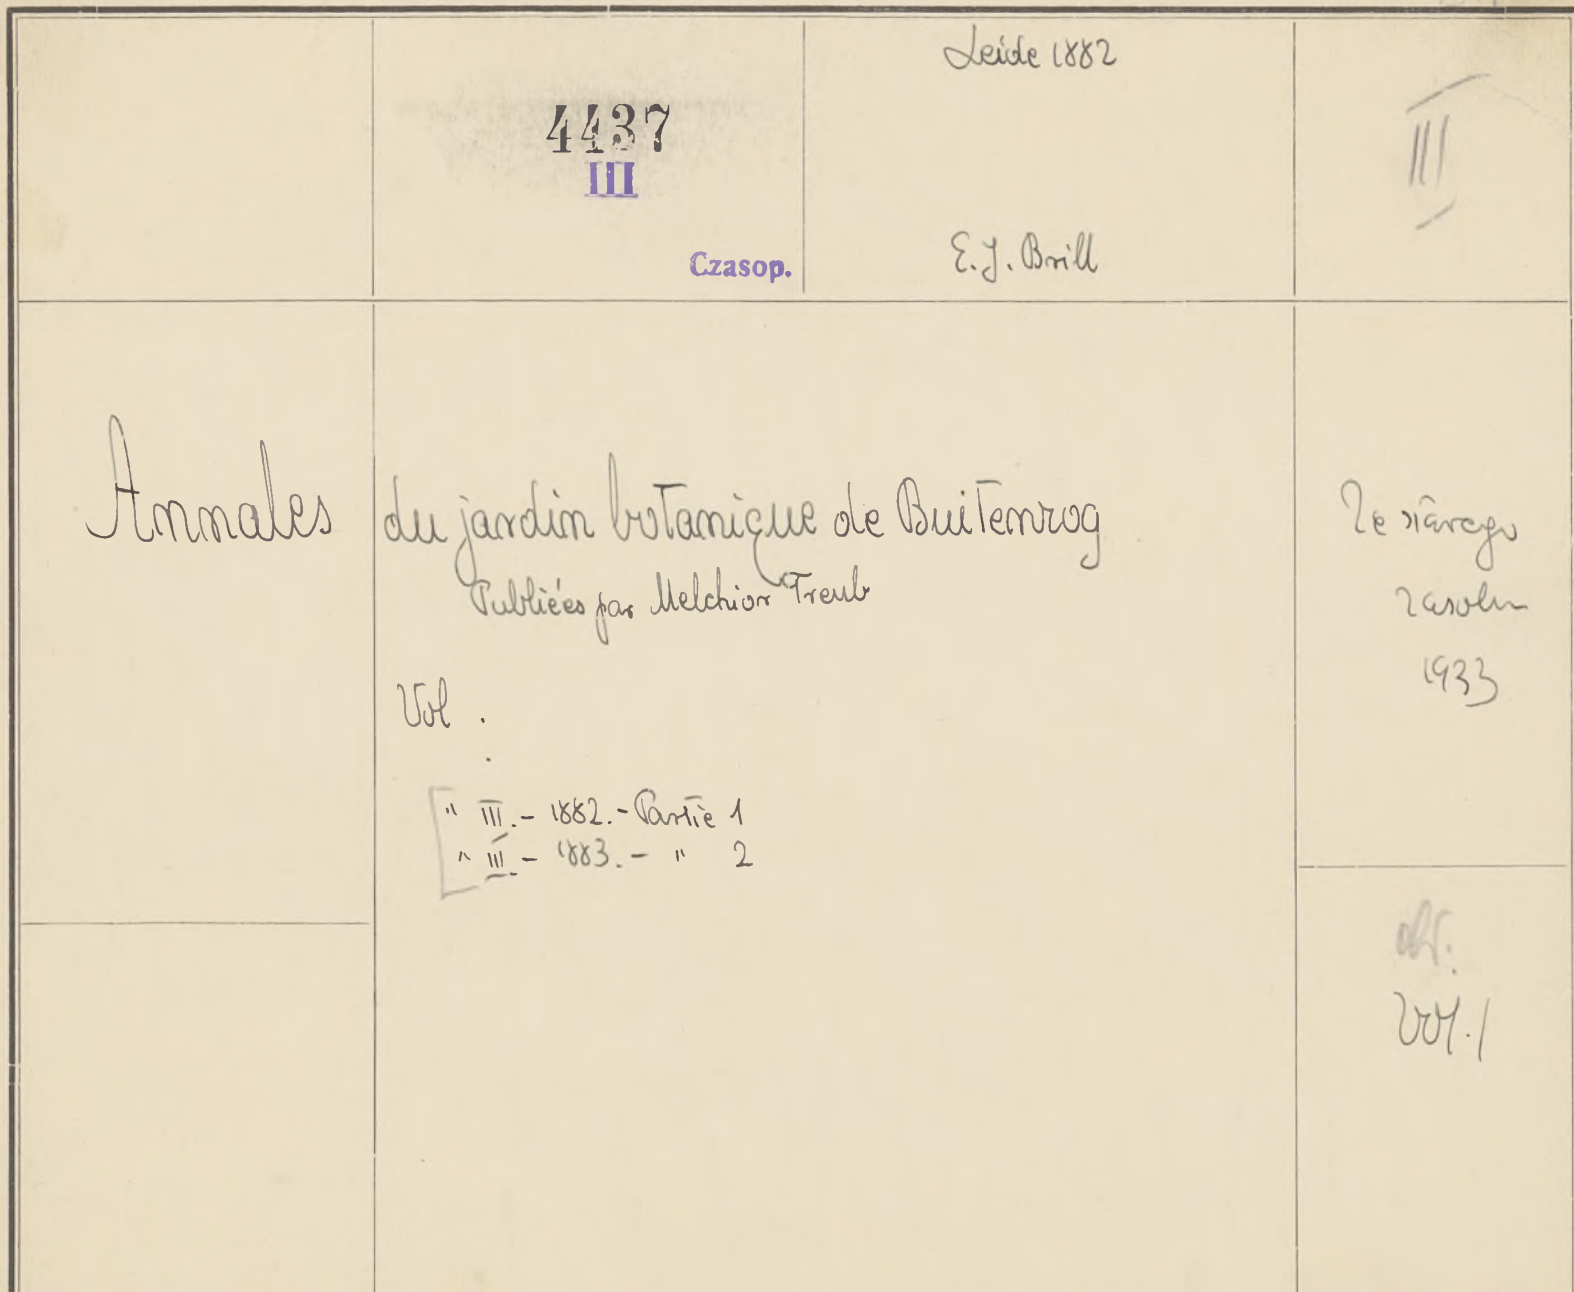 Leide 1882
4437
III
Czasop.
E.J. Brill
III
Annales du jardin botanique de Buitenrog
Publiées par Melchior Treub
Vol .
.
" III.- 1882.- Partie 1
" III.- 1883.- " 2
Ze starego
zasobu
1933
Vol. 1